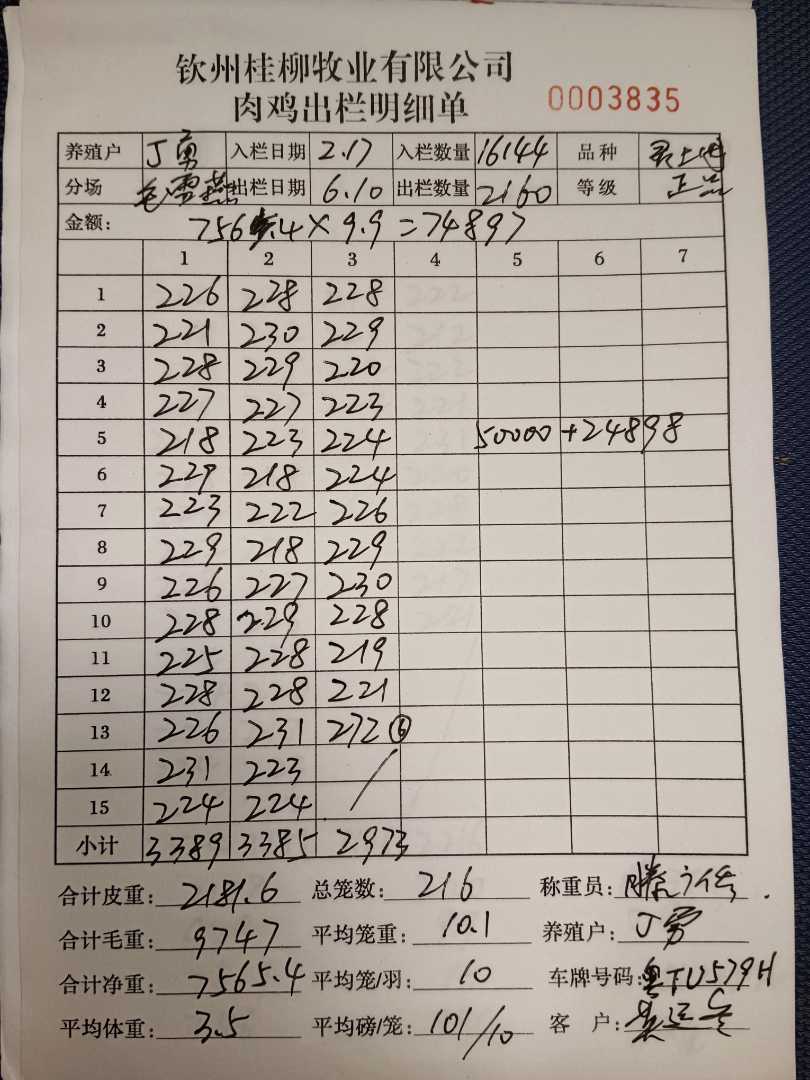 钦州桂柳牧业有限公司
肉鸡出栏明细单 0003835
养殖户 丁勇 入栏日期 2.17 入栏数量 16144 品种
分场 毛雪燕 出栏日期 6.10 出栏数量 2160 等级 正品
金额: 7565.4×9.9=74897
1 2 3 4 5 6 7
1 226 228 228
2 221 230 229
3 228 229 220
4 227 227 223
5 218 223 224 50000+24898
6 229 218 224
7 223 222 226
8 229 218 229
9 226 227 230
10 228 229 228
11 225 228 219
12 228 228 221
13 226 231 272 ⑥
14 231 223 /
15 224 224
小计 3389 3385 2973
合计皮重: 2181.6 总笼数: 216 称重员:
合计毛重: 9747 平均笼重: 10.1 养殖户: 丁勇
合计净重: 7565.4 平均笼/羽: 10 车牌号码: 粤TU579H
平均体重: 3.5 平均磅/笼: 101/10 客 户: